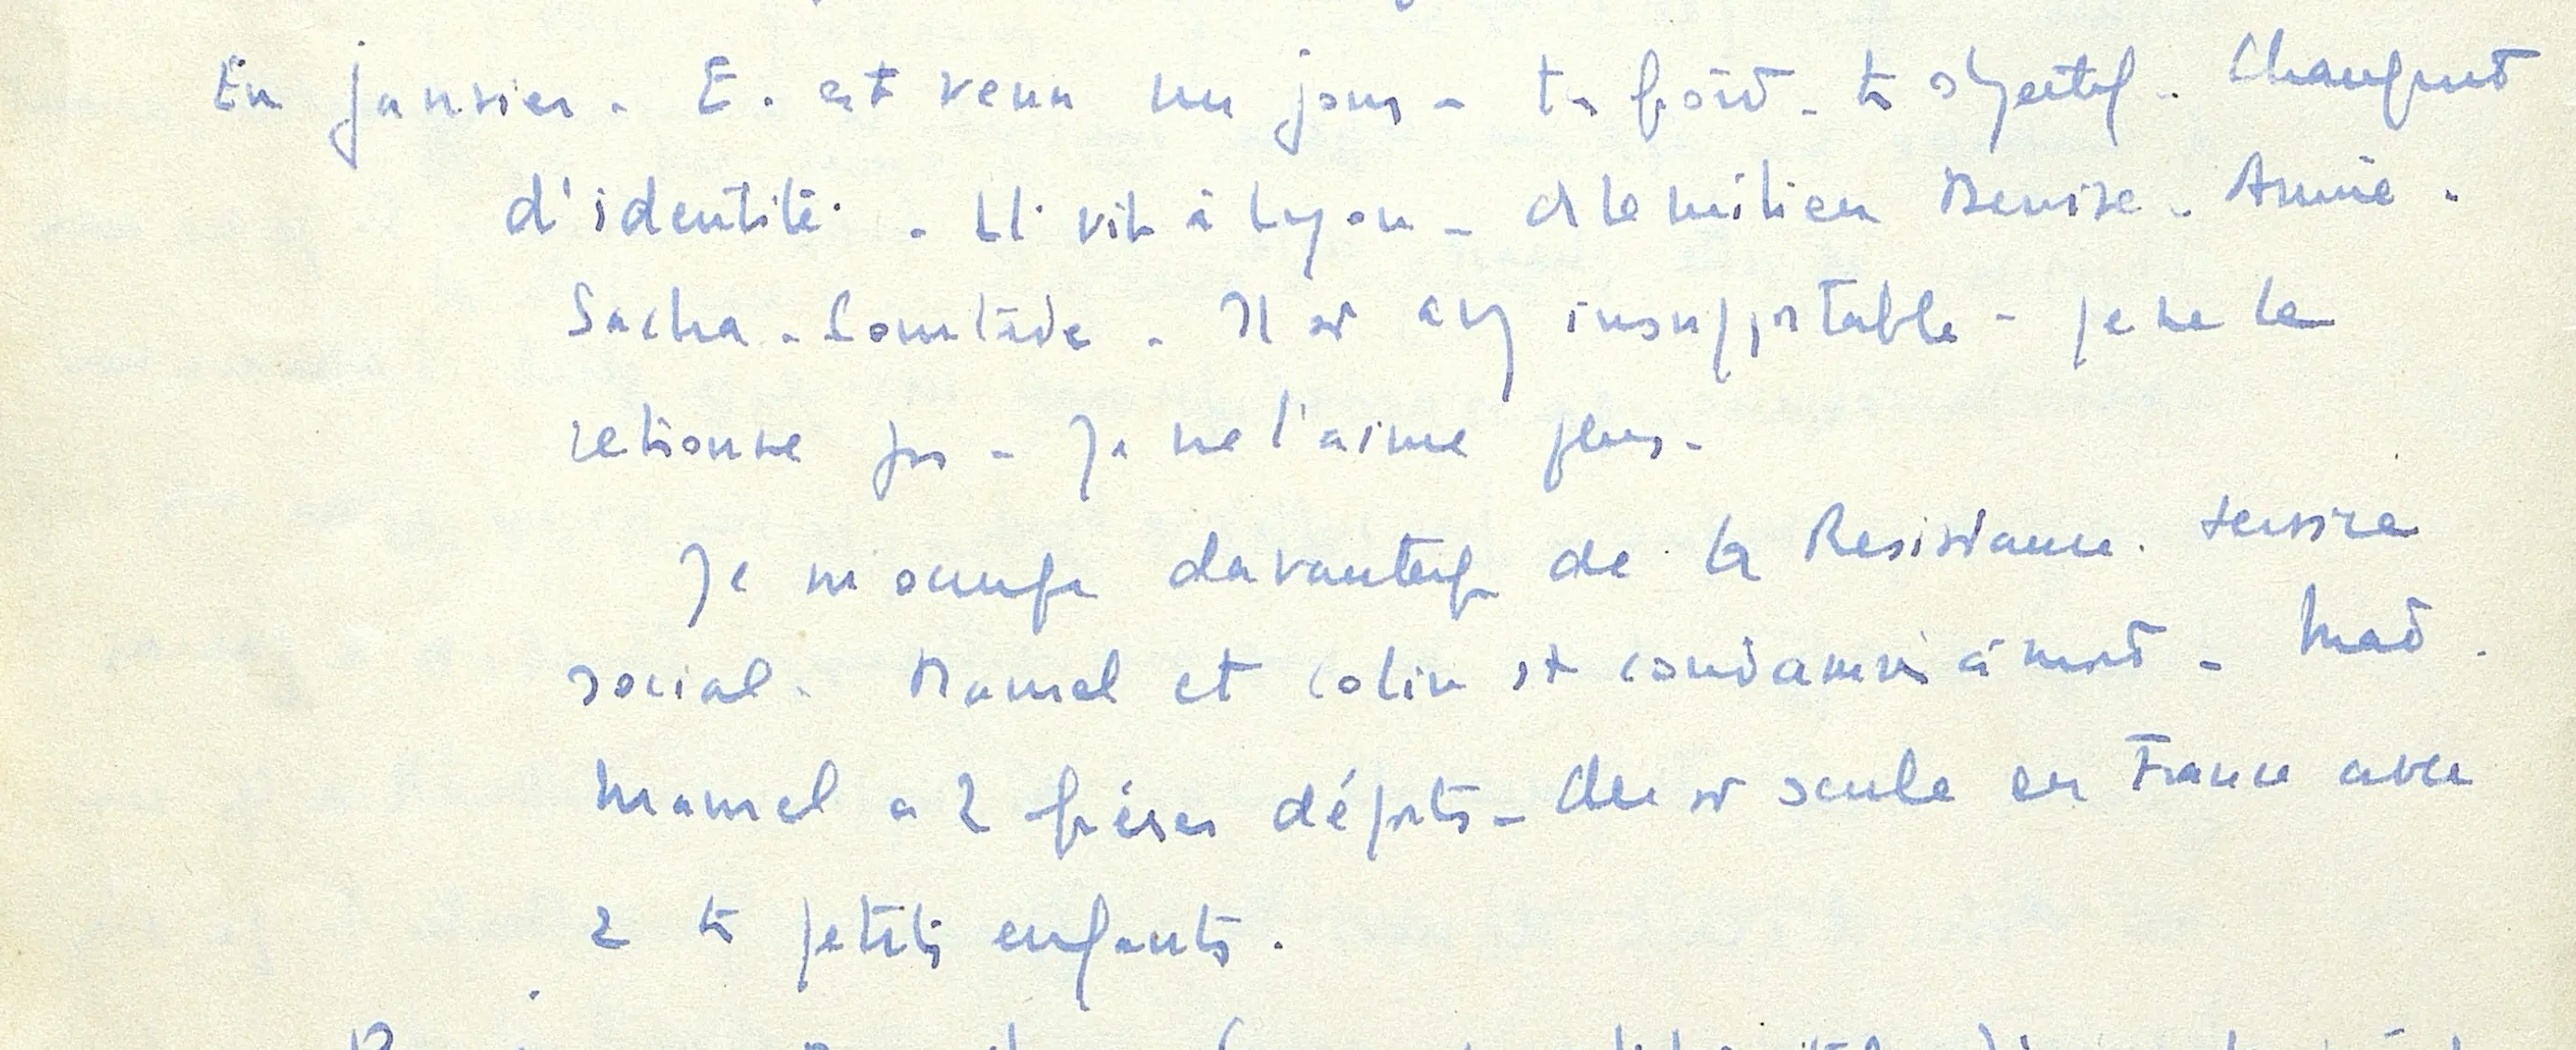 En janvier - E. est venu un jour - ts froid - ts objectif - Changmt
d'identité. - Il vit à Lyon - ds le milieu Denise - Annie -
Sacha - Comtade - Il est insupportable - je ne le
retrouve pas - Je ne l'aime plus -
Je m'occupe davantage de la Resistance. service
social. Mamel et Colin st condamnés à mort - Mad.
Mamel a 2 frères déportés - Elle est seule en France avec
2 ts petits enfants.